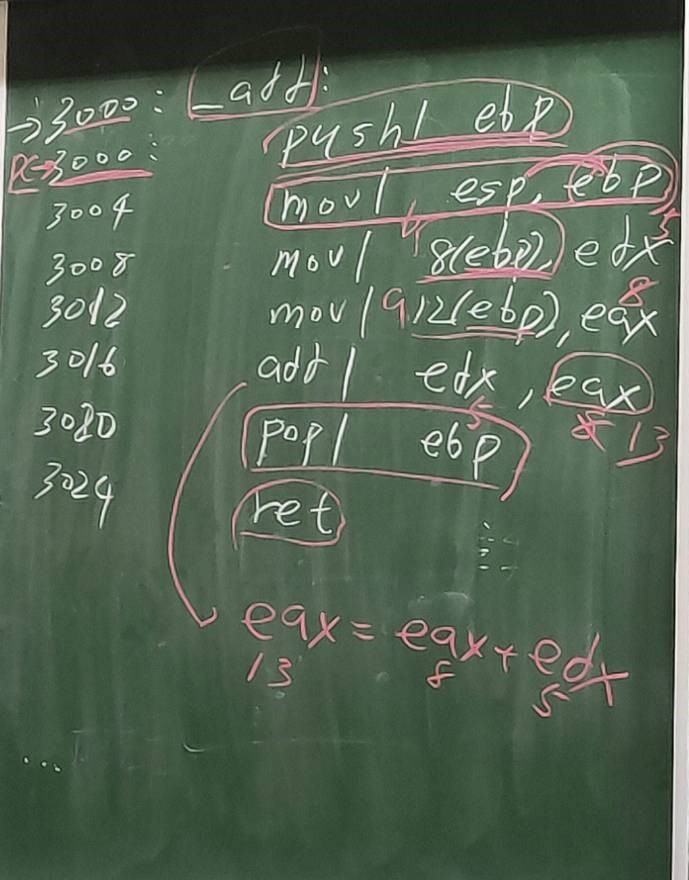 →3000: _add:
PC→3000: pushl ebp
3004 movl esp, ebp
3008 movl 8(ebp), edx 5
3012 movl 12(ebp), eax 8
3016 addl edx, eax
3080 popl ebp 5 8 13
3024 ret
eax = eax + edx
13 8 5
...